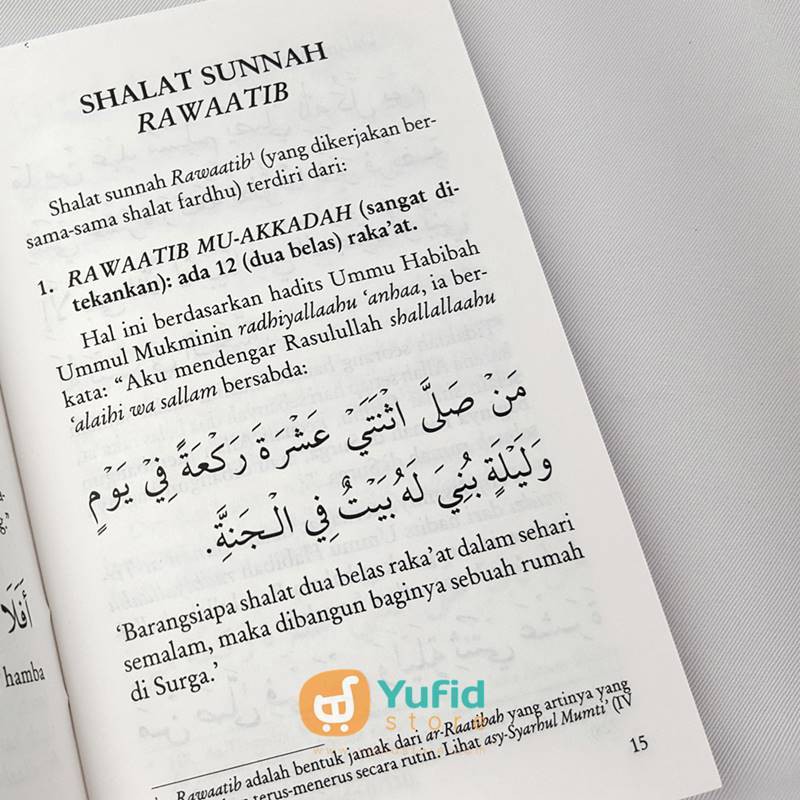 SHALAT SUNNAH
RAWAATIB
Shalat sunnah Rawaatib¹ (yang dikerjakan ber-
sama-sama shalat fardhu) terdiri dari:
1. RAWAATIB MU-AKKADAH (sangat di-
tekankan): ada 12 (dua belas) raka'at.
Hal ini berdasarkan hadits Ummu Habibah
Ummul Mukminin radhiyallaahu 'anhaa, ia ber-
kata: "Aku mendengar Rasulullah shallallaahu
'alaihi wa sallam bersabda:
مَنْ صَلَّى اثْنَتَيْ عَشْرَةَ رَكْعَةً فِيْ يَوْمٍ
وَلَيْلَةٍ بُنِيَ لَهُ بَيْتٌ فِي الْجَنَّةِ.
'Barangsiapa shalat dua belas raka'at dalam sehari
semalam, maka dibangun baginya sebuah rumah
di Surga.'
Yufid
store
Rawaatib adalah bentuk jamak dari ar-Raatibah yang artinya yang
terus-menerus secara rutin. Lihat asy-Syarhul Mumti' (IV
15
أَفَلَا
hamba